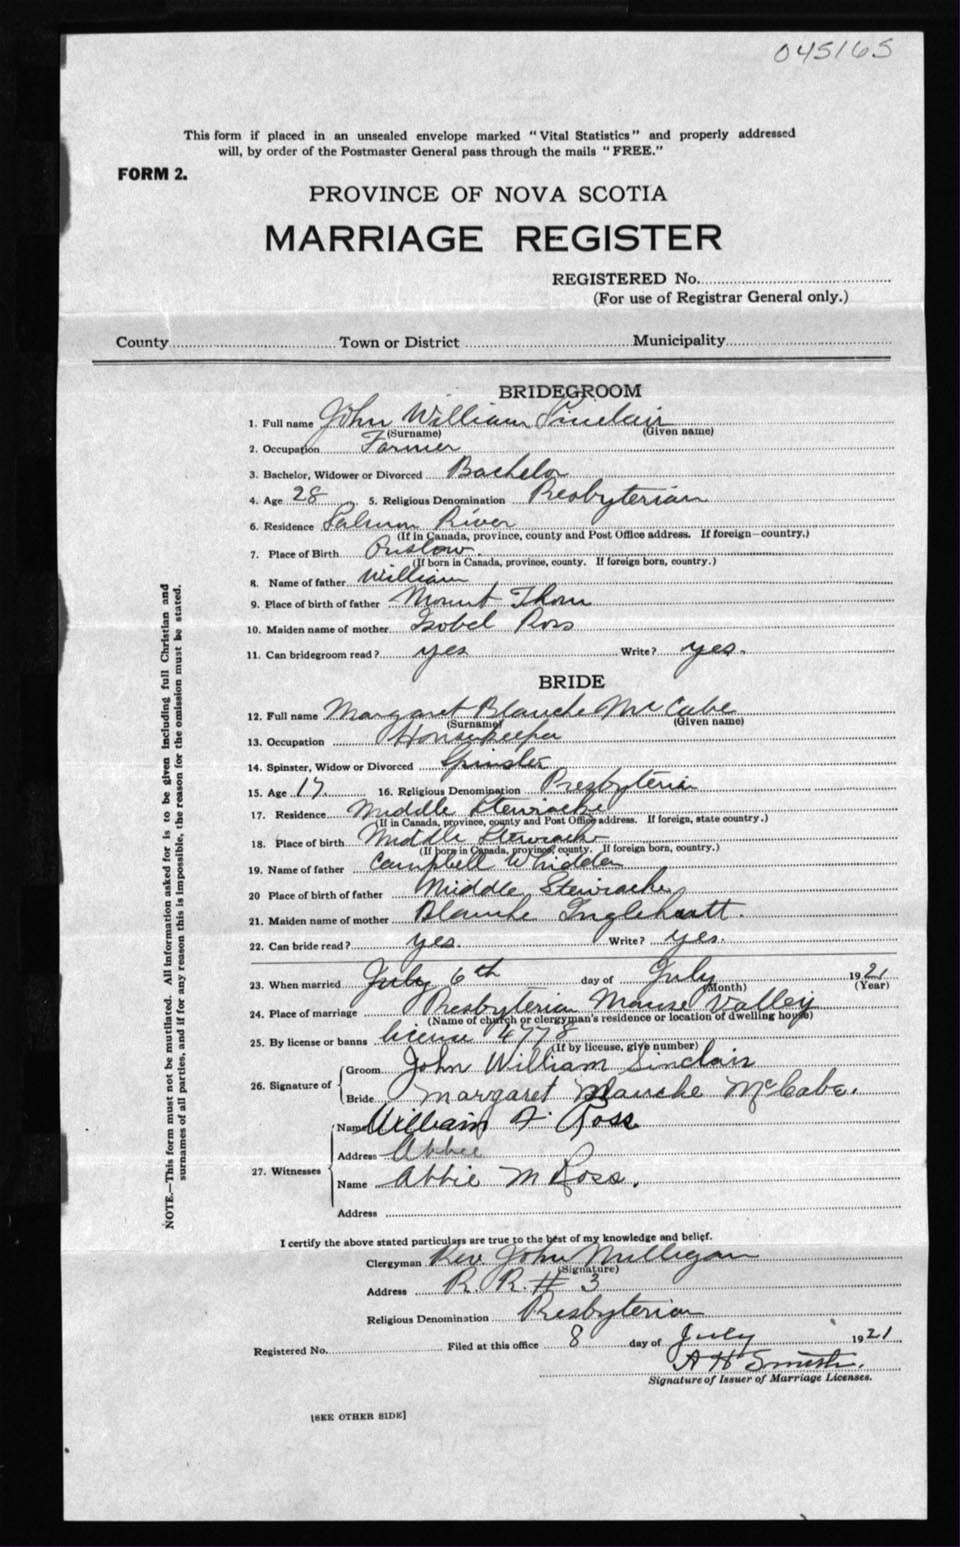 045165
This form if placed in an unsealed envelope marked "Vital Statistics" and properly addressed
will, by order of the Postmaster General pass through the mails "FREE."
FORM 2.
PROVINCE OF NOVA SCOTIA
MARRIAGE REGISTER
REGISTERED No.
(For use of Registrar General only.)
County Town or District Municipality
BRIDEGROOM
1. Full name John William Sinclair
(Surname) (Given name)
2. Occupation Farmer
3. Bachelor, Widower or Divorced Bachelor
4. Age 28 5. Religious Denomination Presbyterian
6. Residence Salmon River
(If in Canada, province, county and Post Office address. If foreign—country.)
7. Place of Birth Onslow.
(If born in Canada, province, county. If foreign born, country.)
8. Name of father William
9. Place of birth of father Mount Thom
10. Maiden name of mother Isobel Ross
11. Can bridegroom read? yes Write? yes.
BRIDE
12. Full name Margaret Blanche McCabe
(Surname) (Given name)
13. Occupation Housekeeper
14. Spinster, Widow or Divorced Spinster
15. Age 17. 16. Religious Denomination Presbyteria
17. Residence Middle Stewiacke
(If in Canada, province, county and Post Office address. If foreign, state country.)
18. Place of birth Middle Stewiacke
(If born in Canada, province, county. If foreign born, country.)
19. Name of father Campbell Whidden
20 Place of birth of father Middle Stewiacke
21. Maiden name of mother Blanche
22. Can bride read? yes. Write? yes.
23. When married July 6th day of July 1921
(Month) (Year)
24. Place of marriage Presbyterian Manse Valley
(Name of church or clergyman's residence or location of dwelling house)
25. By license or banns license 4778
(If by license, give number)
26. Signature of Groom John William Sinclair
Bride Margaret Blanche McCabe.
27. Witnesses
Name William F. Ross
Address Abbie
Name Abbie M Ross.
Address
I certify the above stated particulars are true to the best of my knowledge and belief.
Clergyman Rev. John Milligan
(Signature)
Address R. R. # 3
Religious Denomination Presbyterian
Registered No. Filed at this office 8 day of July 1921
A H Smith.
Signature of Issuer of Marriage Licenses.
[SEE OTHER SIDE]
NOTE.—This form must not be mutilated. All information asked for is to be given including full Christian and
surnames of all parties, and if for any reason this is impossible, the reason for the omission must be stated.